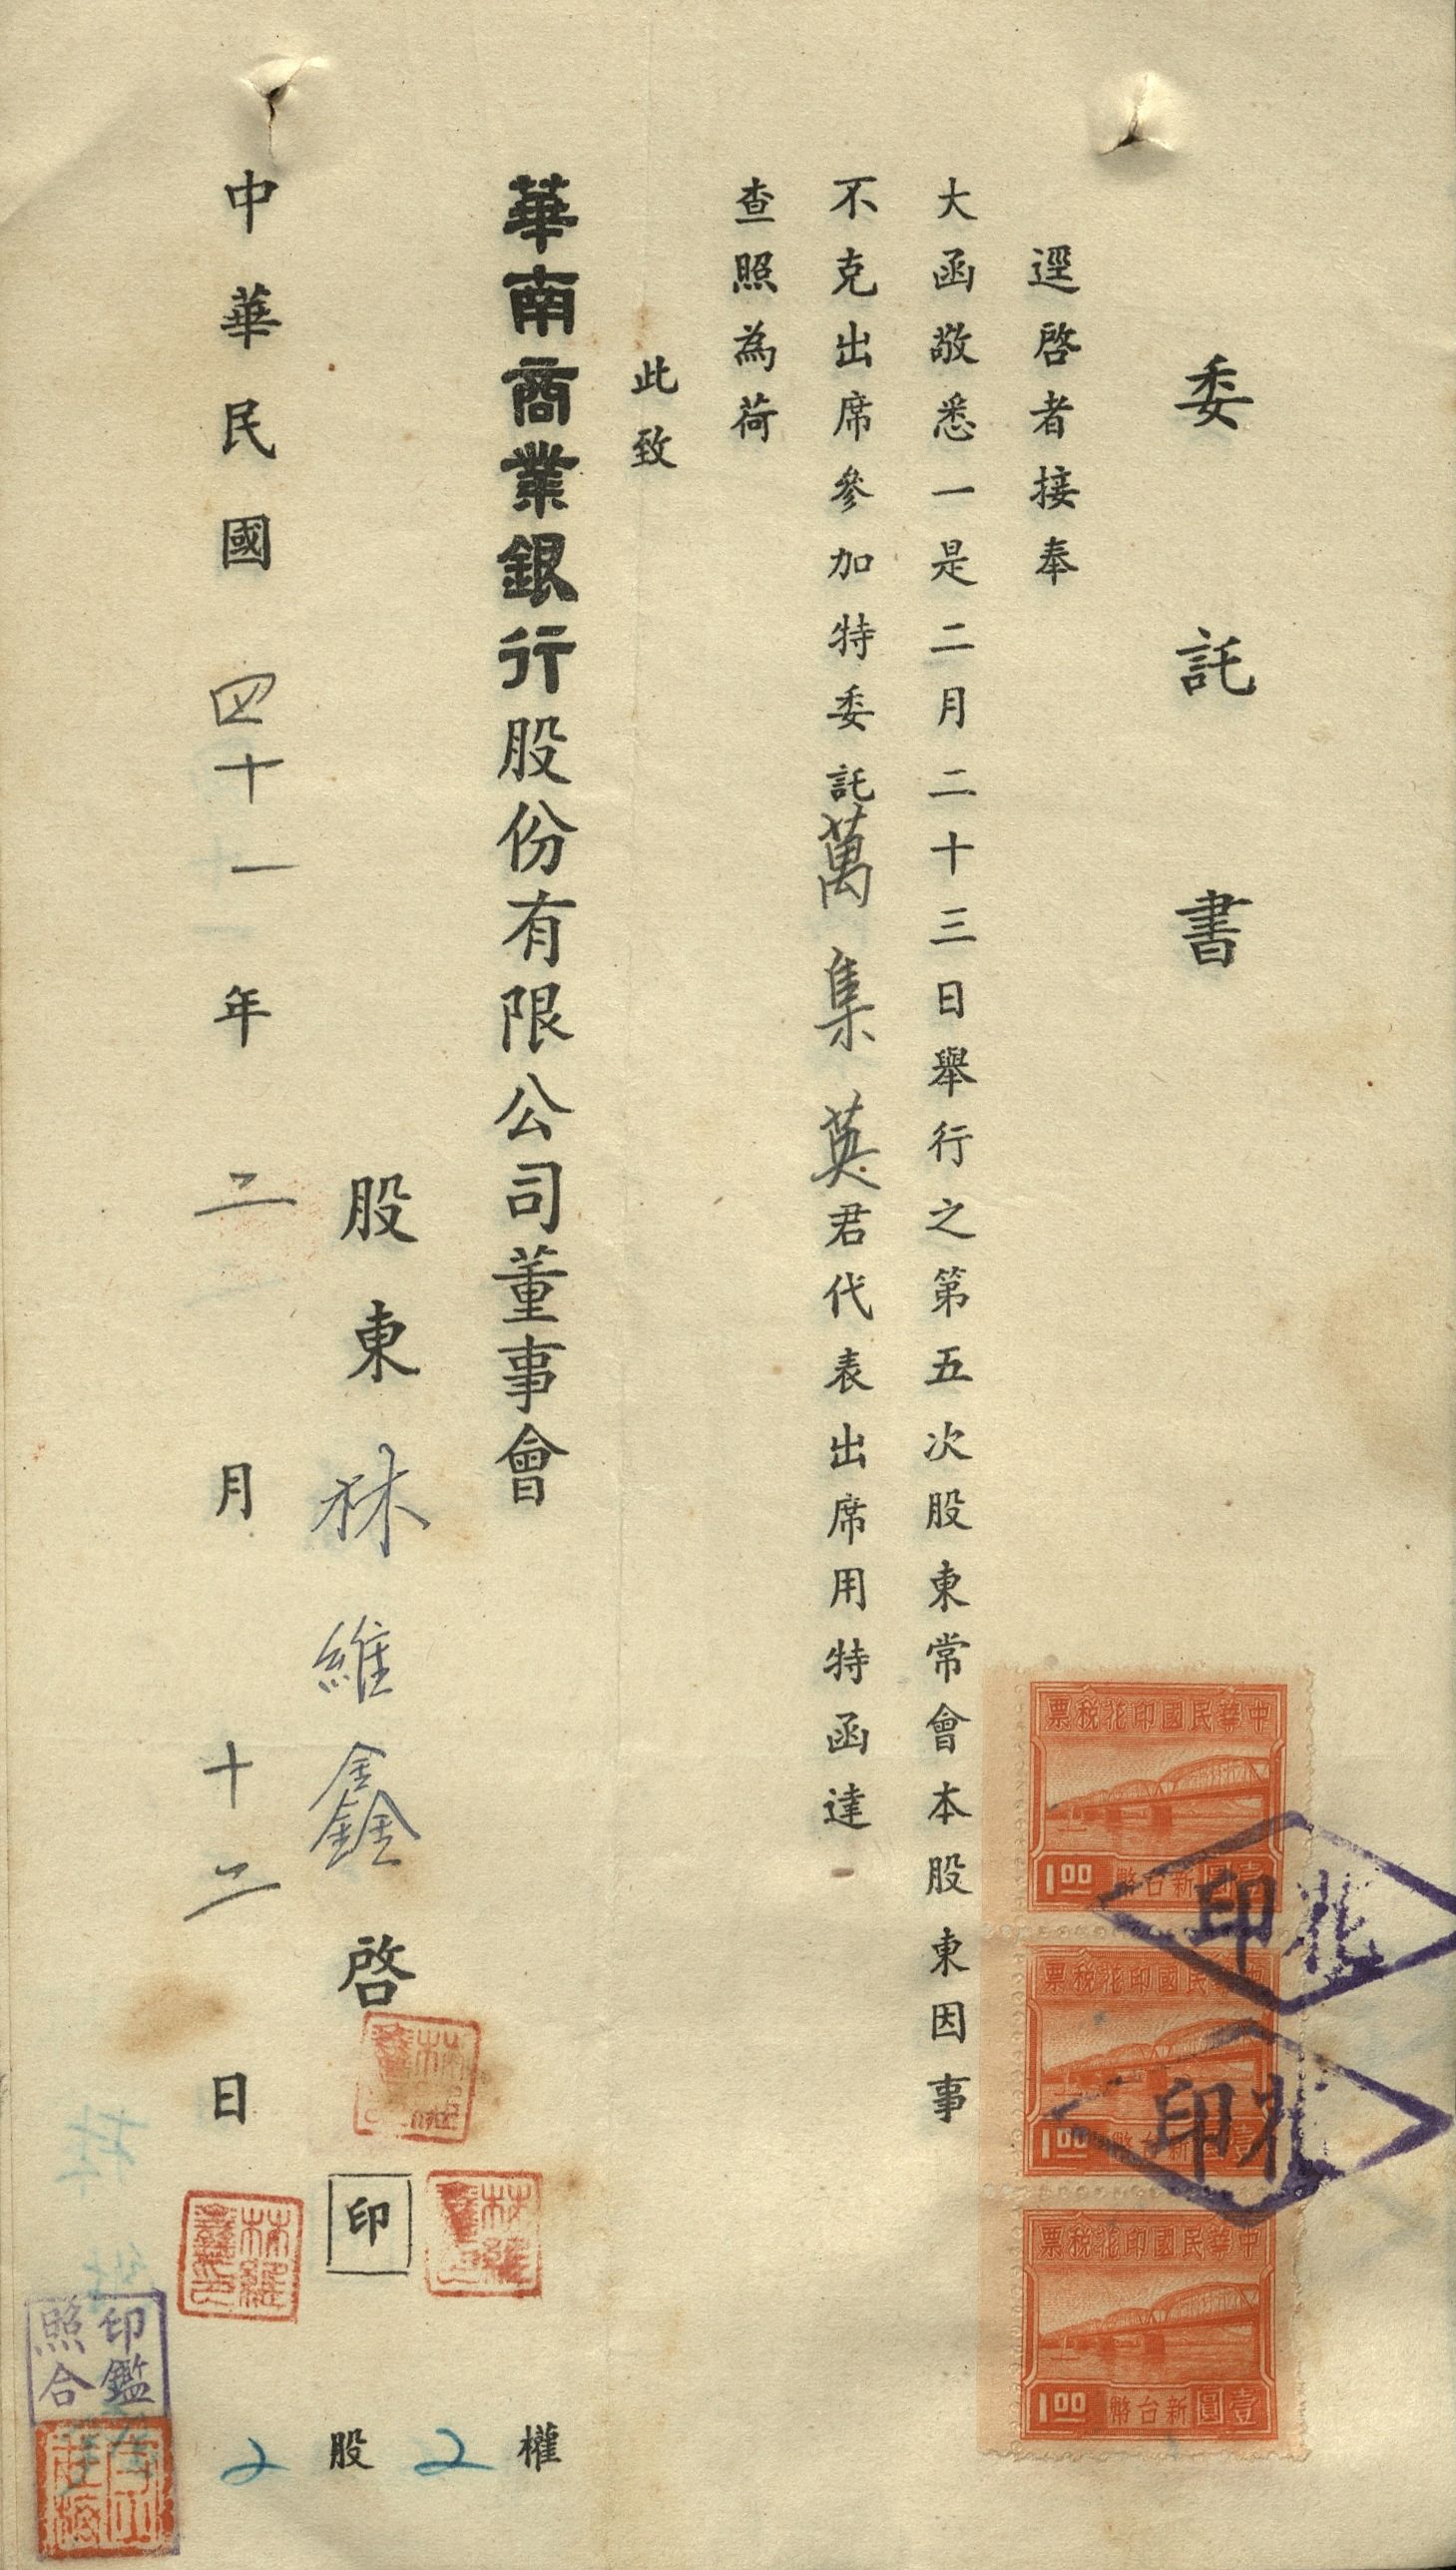 委託書
逕啓者接奉
大函敬悉一是二月二十三日舉行之第五次股東常會本股東因事
不克出席參加特委託萬集英君代表出席用特函達
查照為荷
此致
華南商業銀行股份有限公司董事會
股東林維鑫啓
印
權2股2
中華民國四十一年二月十二日
中華民國印花稅票
壹圓新台幣
1.00
中華民國印花稅票
壹圓新台幣
1.00
中華民國印花稅票
壹圓新台幣
1.00
印花
印花
林維鑫印
林維
林維
印鑑
照合